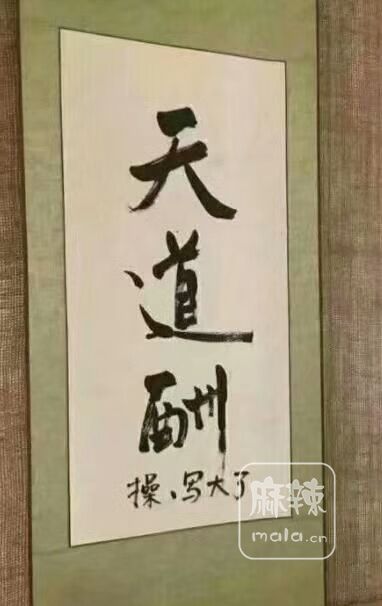 天
道
酬
操、写大了
麻辣
mala.cn